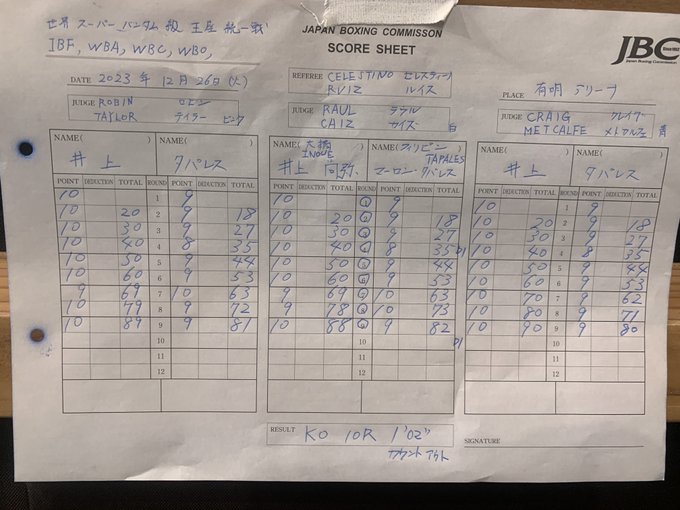 世界 スーパー バンタム 級 王座 統一戦
IBF, WBA, WBC, WBO,
JAPAN BOXING COMMISSON
SCORE SHEET
JBC
Since 1952
Japan Boxing Commission
DATE 2023 年 12 月 26 日 (火)
REFEREE CELESTINO セレスティーノ
RUIZ ルイス
PLACE 有明 アリーナ
JUDGE ROBIN ロビン
TAYLOR テイラー ピンク
JUDGE RAUL ラウル
CAIZ カイズ 白
JUDGE CRAIG クレイグ
METCALFE メトカルフェ 青
NAME( ) NAME( )
井上 タパレス
NAME( 大橋 ) NAME( フィリピン )
INOUE TAPALES
井上 尚弥 マーロン・タパレス
NAME( ) NAME( )
井上 タパレス
POINT DEDUCTION TOTAL ROUND POINT DEDUCTION TOTAL
10 1 9
10 20 2 9 18
10 30 3 9 27
10 40 4 8 35
10 50 5 9 44
10 60 6 9 53
9 69 7 10 63
10 79 8 9 72
10 89 9 9 81
10
11
12
POINT DEDUCTION TOTAL ROUND POINT DEDUCTION TOTAL
10 9
10 20 9 18
10 30 9 27
10 40 8 35 D1
10 50 9 44
10 60 9 53
9 69 10 63
9 78 10 73
10 88 9 82
10 D1
11
12
POINT DEDUCTION TOTAL ROUND POINT DEDUCTION TOTAL
10 1 9
10 20 2 9 18
10 30 3 9 27
10 40 4 8 35
10 50 5 9 44
10 60 6 9 53
10 70 7 9 62
10 80 8 9 71
10 90 9 9 80
10
11
12
RESULT KO 10R 1'02"
カウント アウト
SIGNATURE